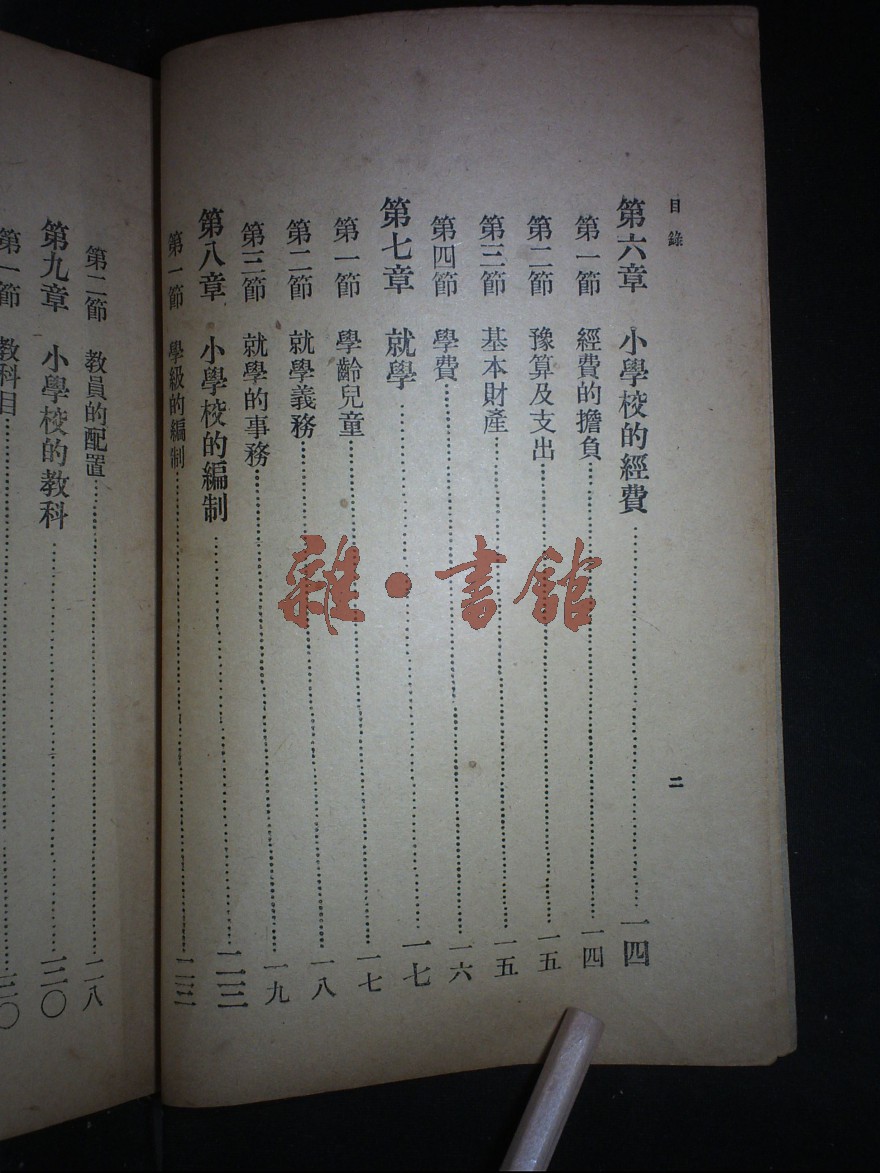 目錄
第六章 小學校的經費……一四
第一節 經費的擔負……一四
第二節 豫算及支出……一五
第三節 基本財產……一五
第四節 學費……一六
第七章 就學……一七
第一節 學齡兒童……一七
第二節 就學義務……一八
第三節 就學的事務……一九
第八章 小學校的編制……二三
第一節 學級的編制……二三
二
第二節 教員的配置……二八
第九章 小學校的教科……三〇
第一節 教科目……三〇
雜·書館